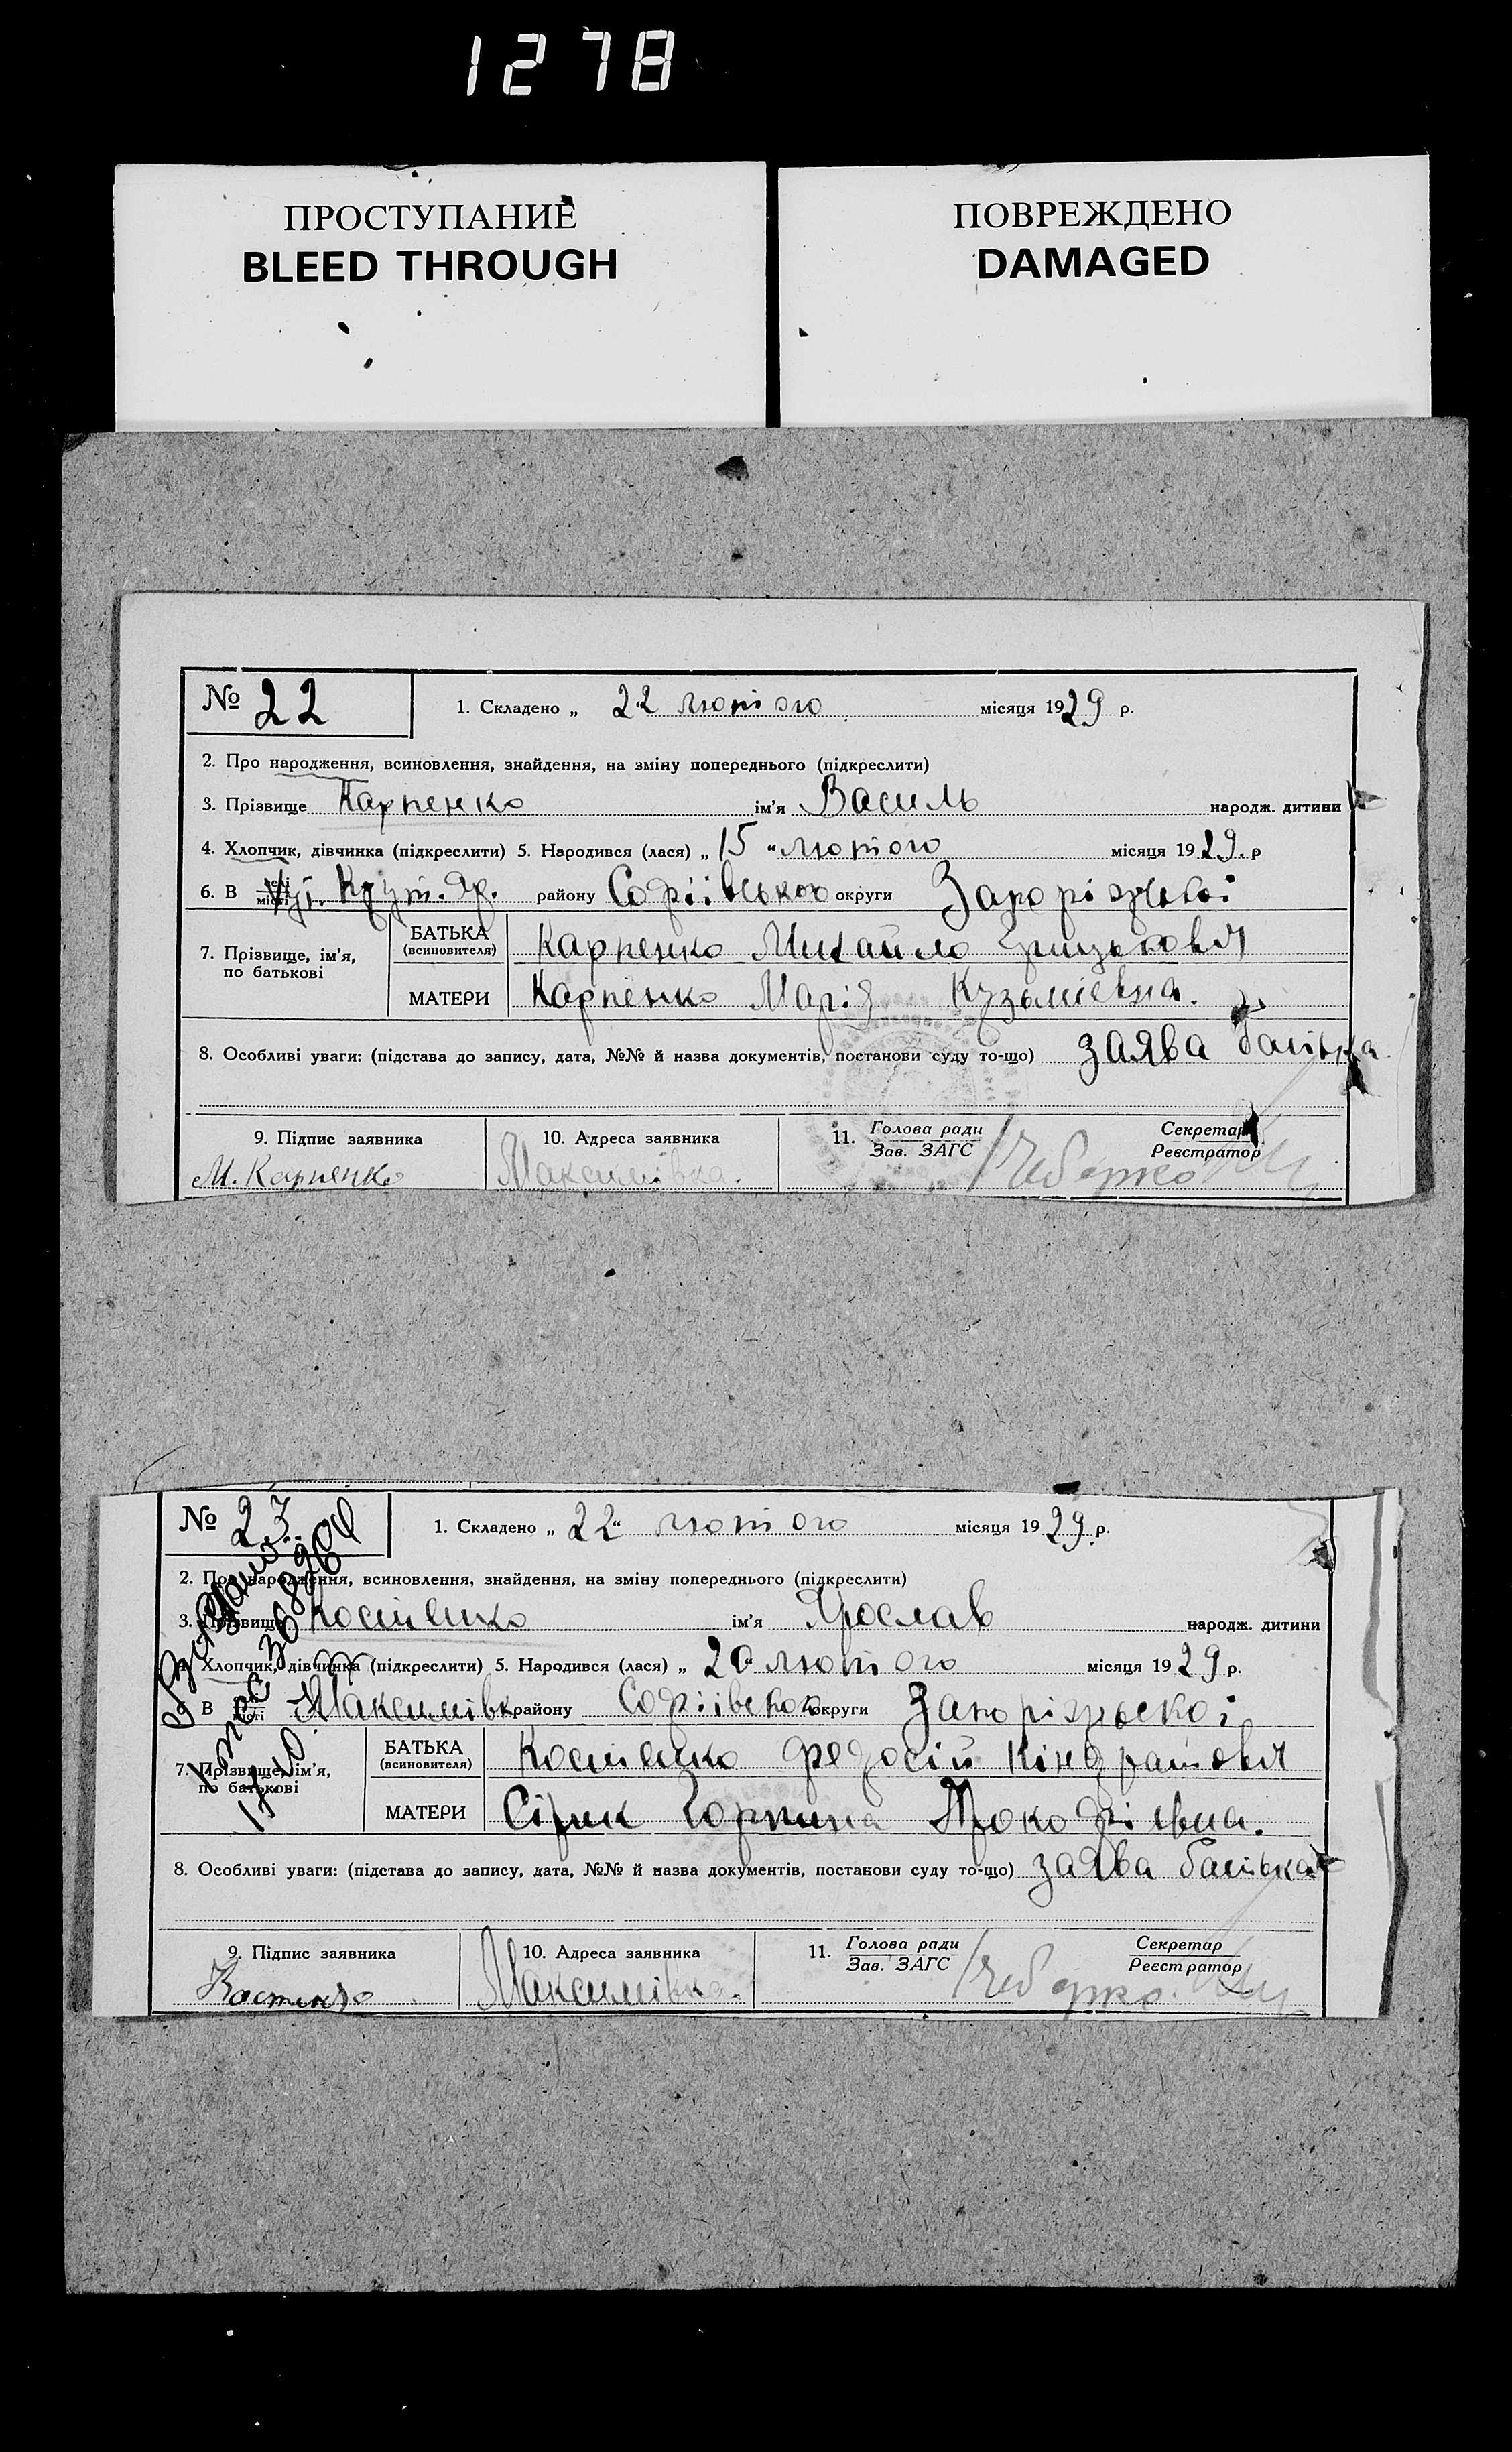 1278
ПРОСТУПАНИЕ
BLEED THROUGH
ПОВРЕЖДЕНО
DAMAGED
№ 22
1. Складено „ 22 лютого місяця 1929 р.
2. Про народження, всиновлення, знайдення, на зміну попереднього (підкреслити)
3. Прізвище Карпенко ім'я Василь народж. дитини
4. Хлопчик, дівчинка (підкреслити) 5. Народився (лася) „ 15 “ лютого місяця 1929. р
6. В селі місті Крут. Яр. району Софіівського округи Запоріжської
7. Прізвище, ім'я, по батькові
БАТЬКА (всиновителя) Карпенко Михайло Грицькович
МАТЕРИ Карпенко Марія Кузьміевна.
8. Особливі уваги: (підстава до запису, дата, №№ й назва документів, постанови суду то-що) заява батька
9. Підпис заявника
10. Адреса заявника
11. Голова ради Зав. ЗАГС
Секретар Реєстратор
М. Карпенко
Максимівка.
№ 23
1. Складено „ 22 “ лютого місяця 1929. р.
2. Про народження, всиновлення, знайдення, на зміну попереднього (підкреслити)
3. Прізвище Костенко ім'я Ярослав народж. дитини
4. Хлопчик, дівчинка (підкреслити) 5. Народився (лася) „ 20 лютого місяця 1929 р.
6. В селі місті Максимівк району Софіівського округи Запоріжської
7. Прізвище, ім'я, по батькові
БАТЬКА (всиновителя) Костенко Федосій Кіндратович
МАТЕРИ Сірик Горпина Прокофіевна.
8. Особливі уваги: (підстава до запису, дата, №№ й назва документів, постанови суду то-що) заява батька
9. Підпис заявника
10. Адреса заявника
11. Голова ради Зав. ЗАГС
Секретар Реєстратор
Костенко
Максимівка.